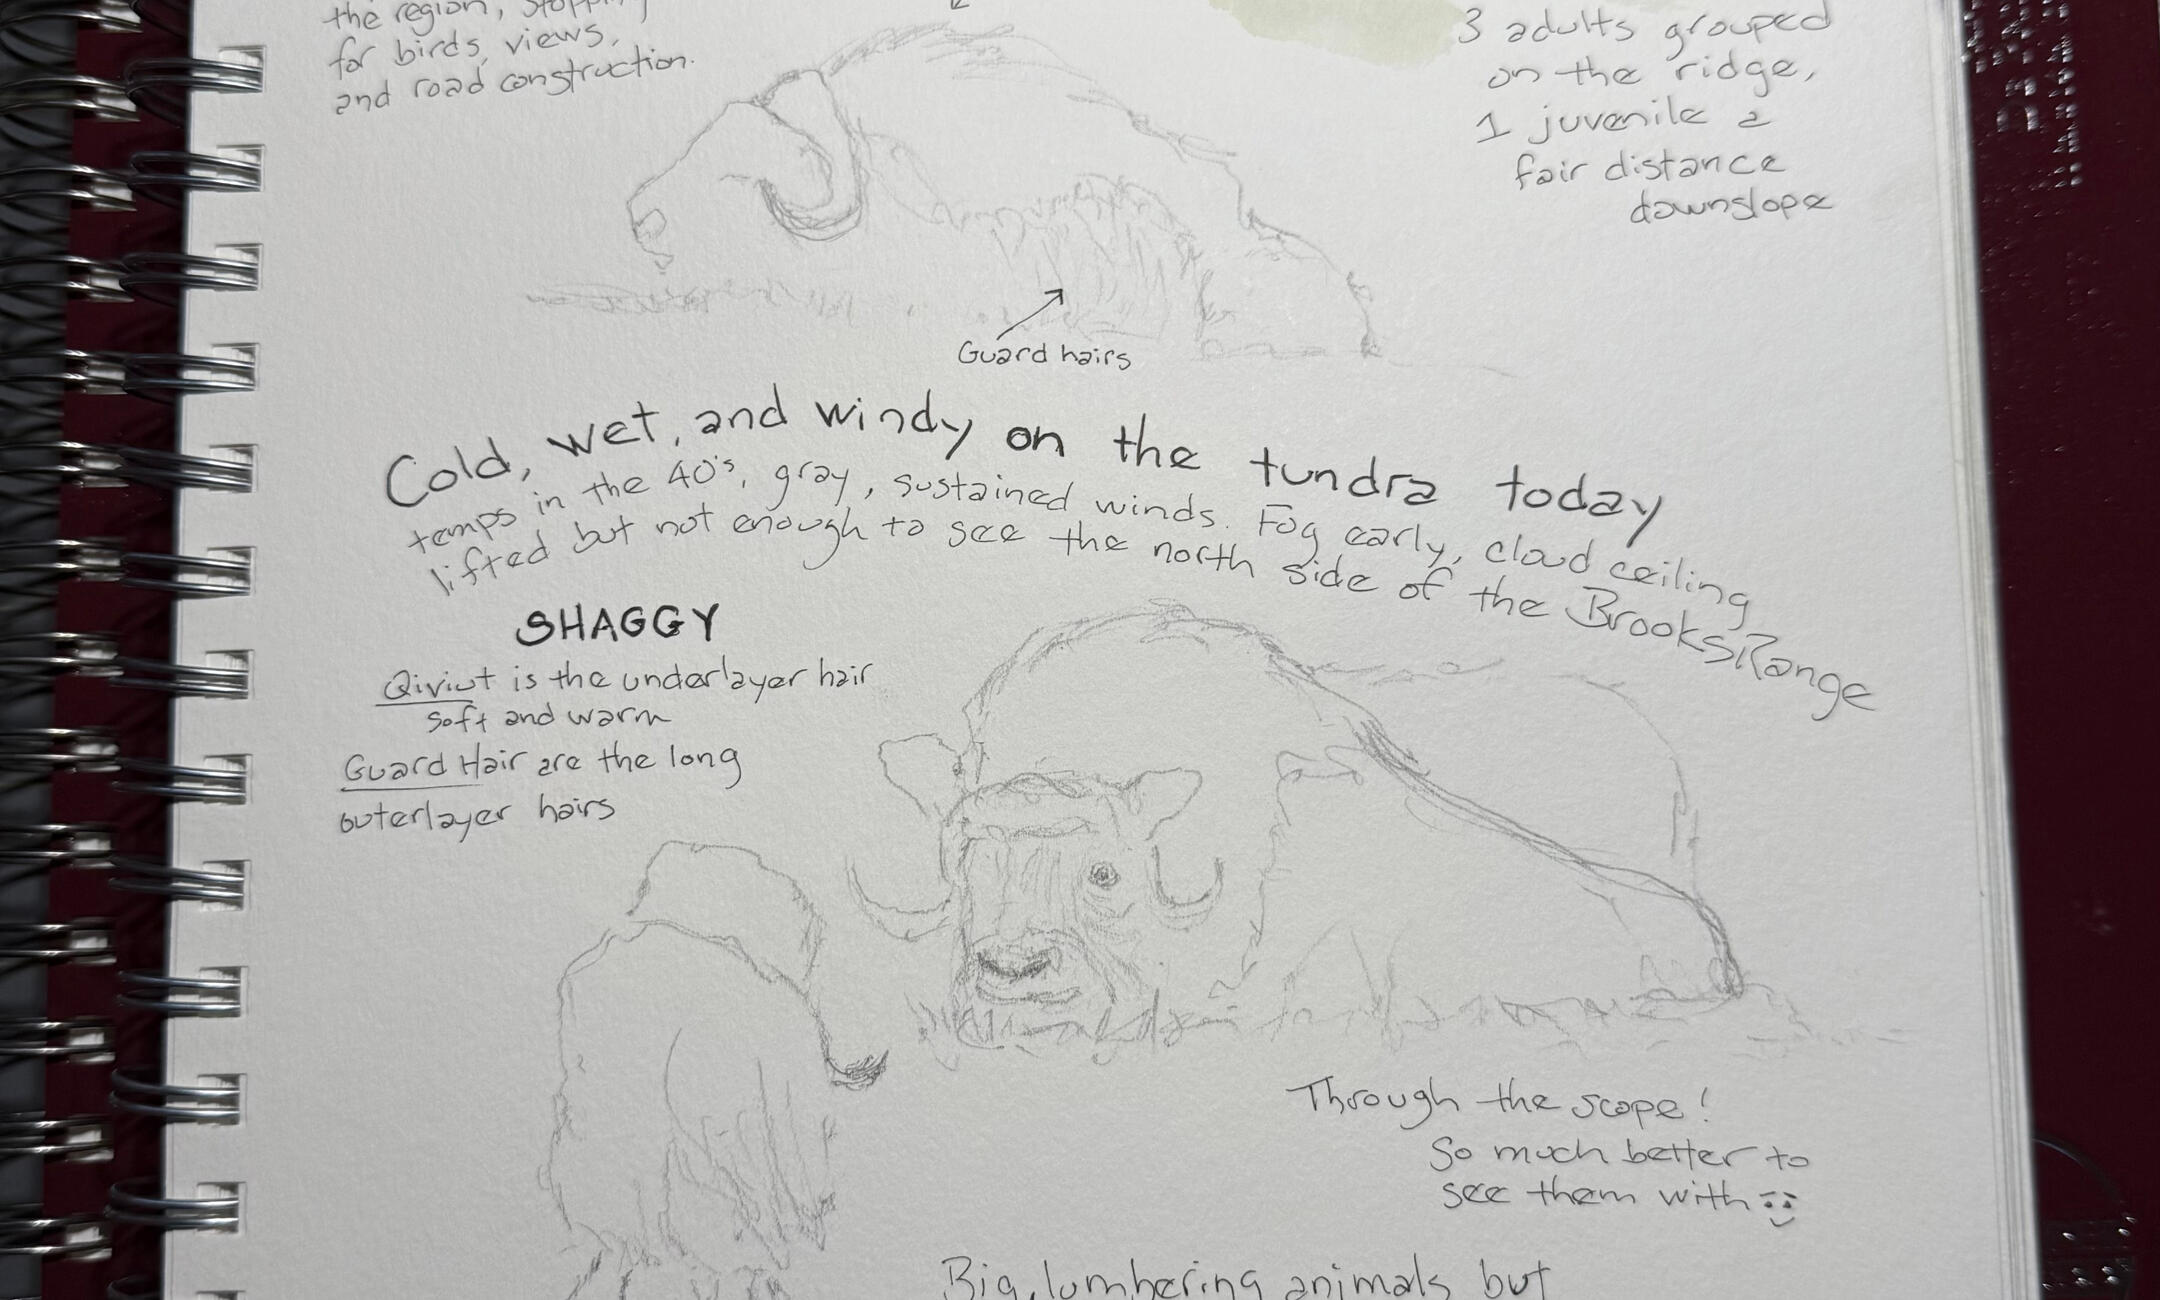 the region, stopping
for birds, views,
and road construction.
3 adults grouped
on the ridge,
1 juvenile a
fair distance
downslope
Guard hairs
Cold, wet, and windy on the tundra today
temps in the 40's, gray, sustained winds. Fog early, cloud ceiling
lifted but not enough to see the north side of the Brooks Range
SHAGGY
Qiviut is the underlayer hair
soft and warm
Guard Hair are the long
outerlayer hairs
Through the scope!
So much better to
see them with
Big, lumbering animals but